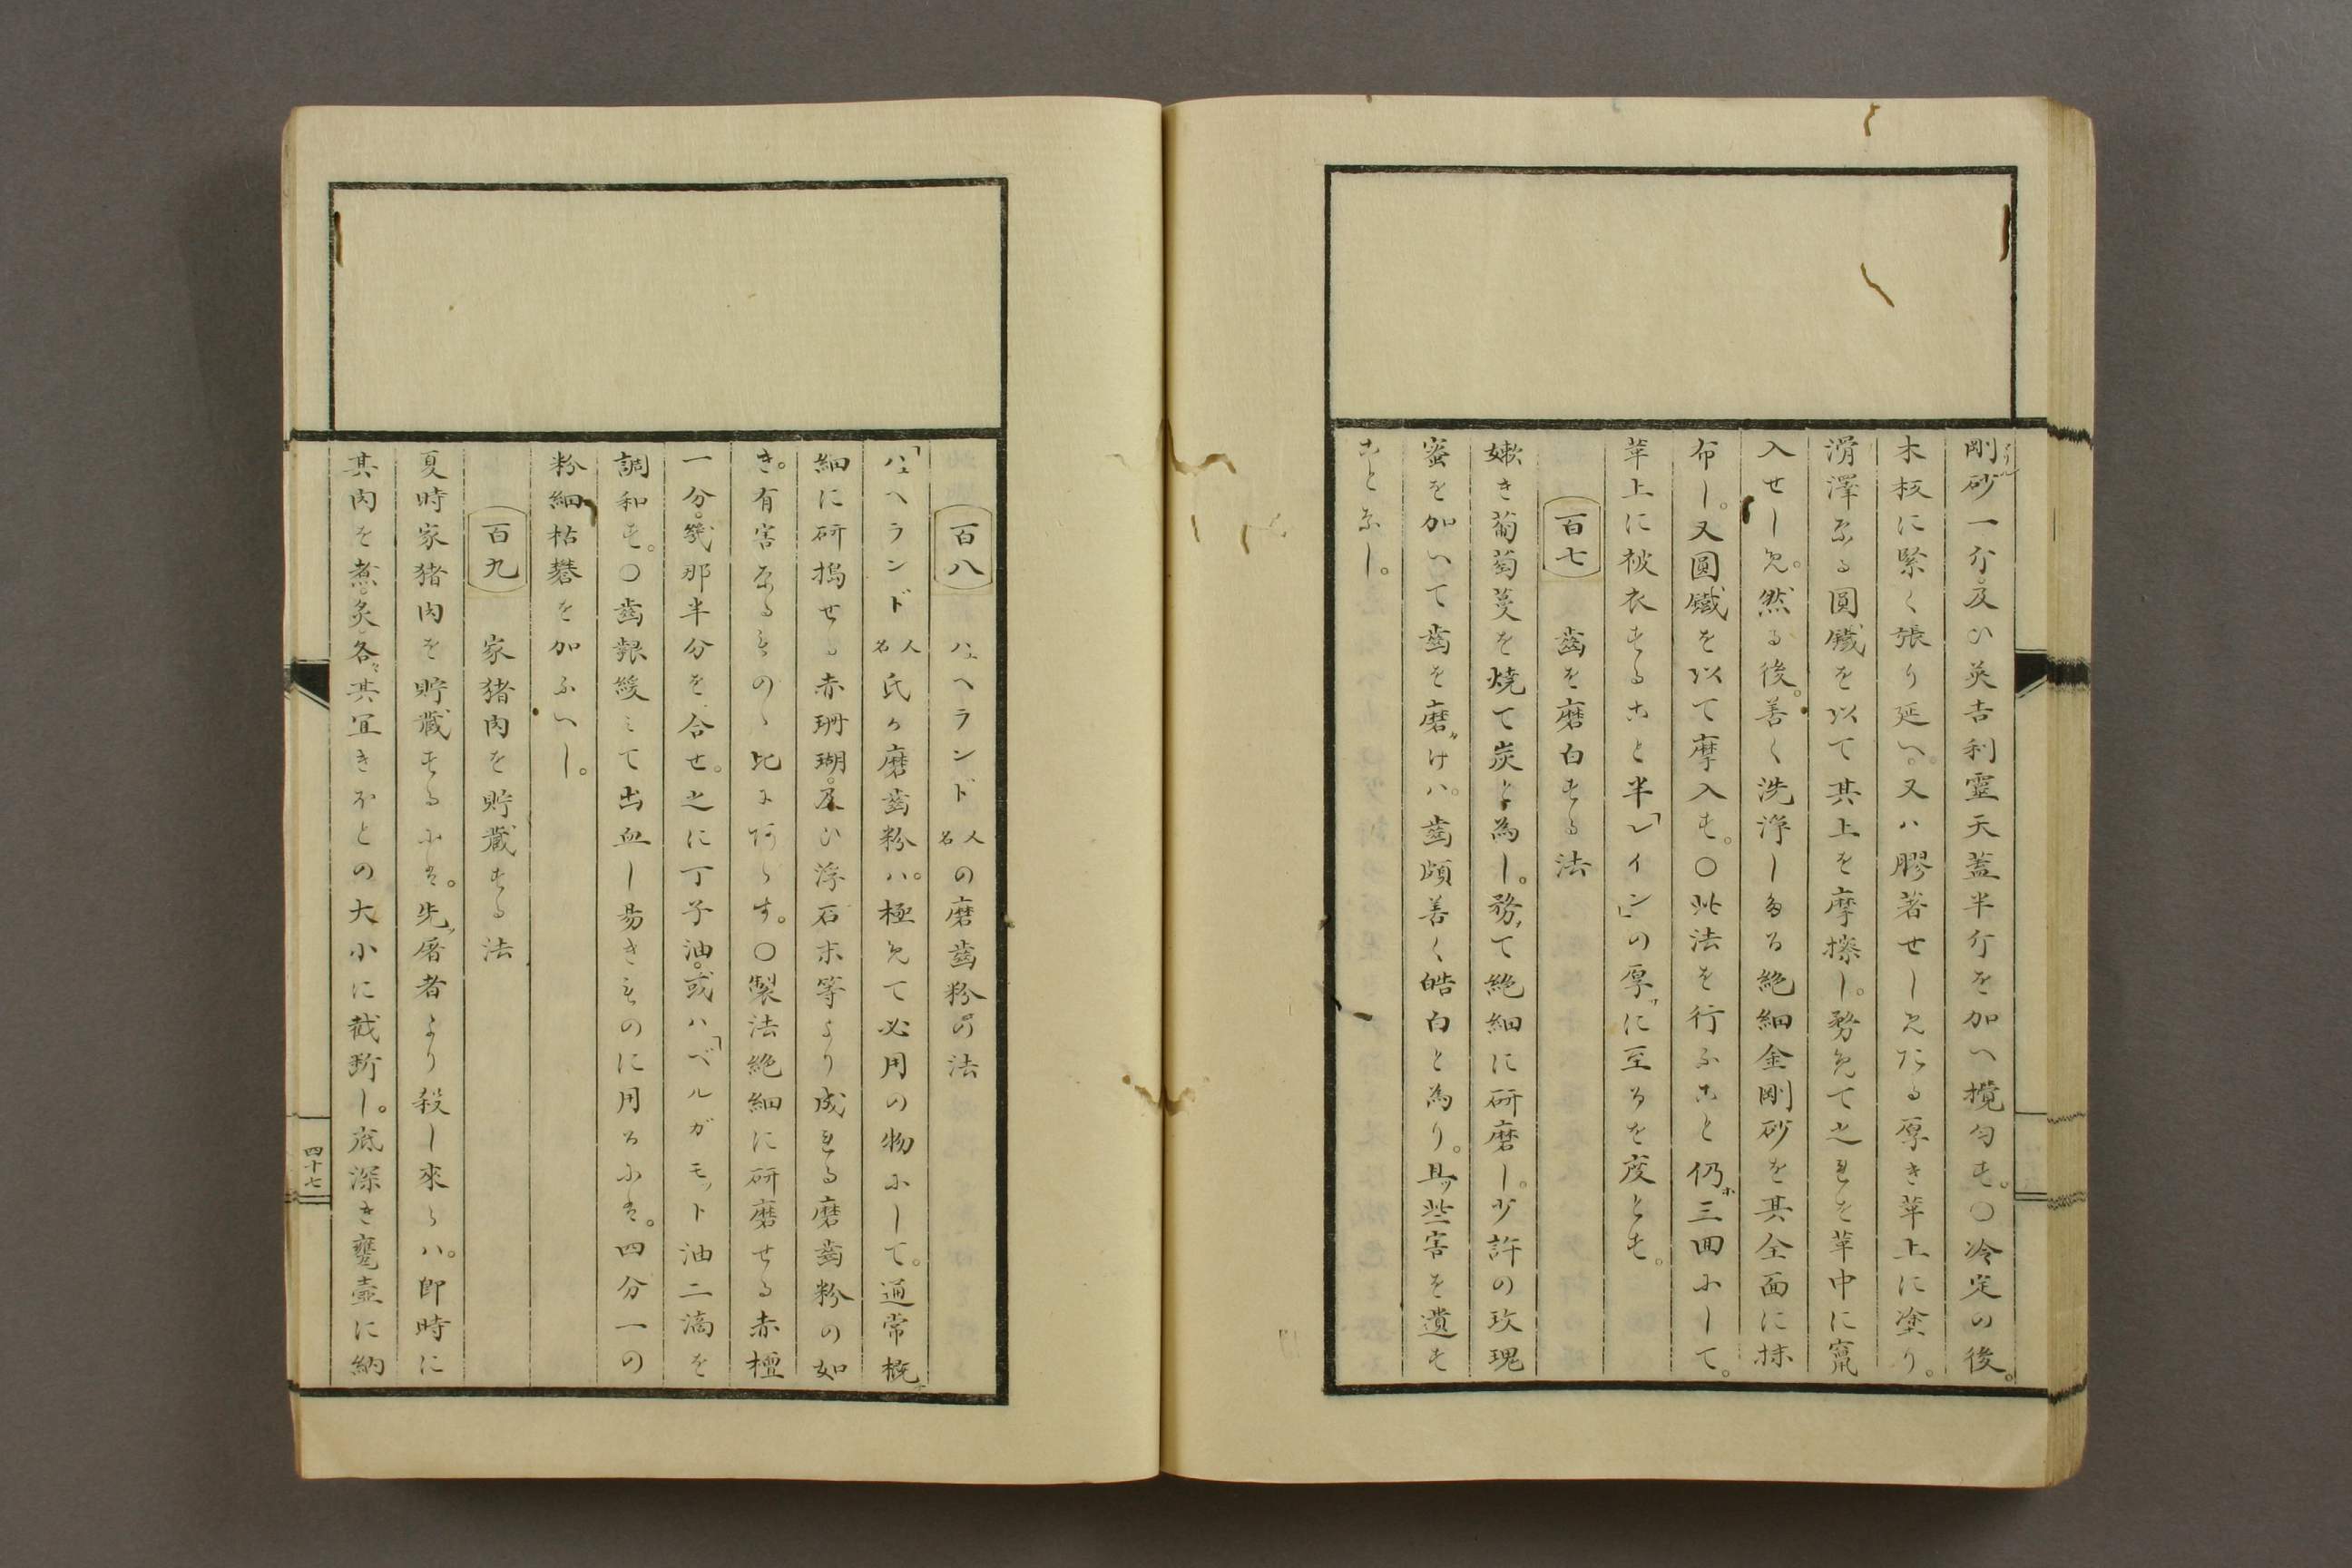 剛砂一斤。及ひ英吉利靈天蓋半斤を加へ攪匀す。〇冷定の後。
木板に緊く張り延へ。又ハ膠著せしめたる厚き革上に塗り。
滑澤なる圓鐵を以て其上を摩擦し。務めて之れを革中に竄
入せしめ。然る後。善く洗淨したる絶細金剛砂を其全面に抹
布し。又圓鐵を以て摩入す。〇此法を行ふこと仍ホ三回にして。
革上に被衣すること半「レイン」の厚サに至るを度とす。
百七 齒を磨白する法
嫩き葡萄蔓を燒て炭と為し。務て絶細に研磨し。少許の玫瑰
蜜を加へて齒を磨けハ。齒頗善く皓白と為り。且ツ些害を遺す
ことなし。
百八 ハェヘランド人名の磨齒粉の法
「ハェヘランド人名氏か磨齒粉ハ。極めて必用の物にして。通常概
細に研搗せる赤珊瑚。及ひ浮石末等より成れる磨齒粉の如
き。有害なるものゝ比にあらす。〇製法絶細に研磨せる赤檀
一分。幾那半分を合せ。之に丁子油。或ハ「ベルガモット油二滴を
調和す。〇齒齦緩ミて出血し易きものに用るにハ。四分一の
粉細枯礬を加ふへし。
百九 家猪肉を貯藏する法
夏時家猪肉を貯藏するにハ。先ツ屠者より殺し來らハ。即時に
其肉を煮。炙。各々其宜きほとの大小に截斷し。底深き甕壷に納
四十七